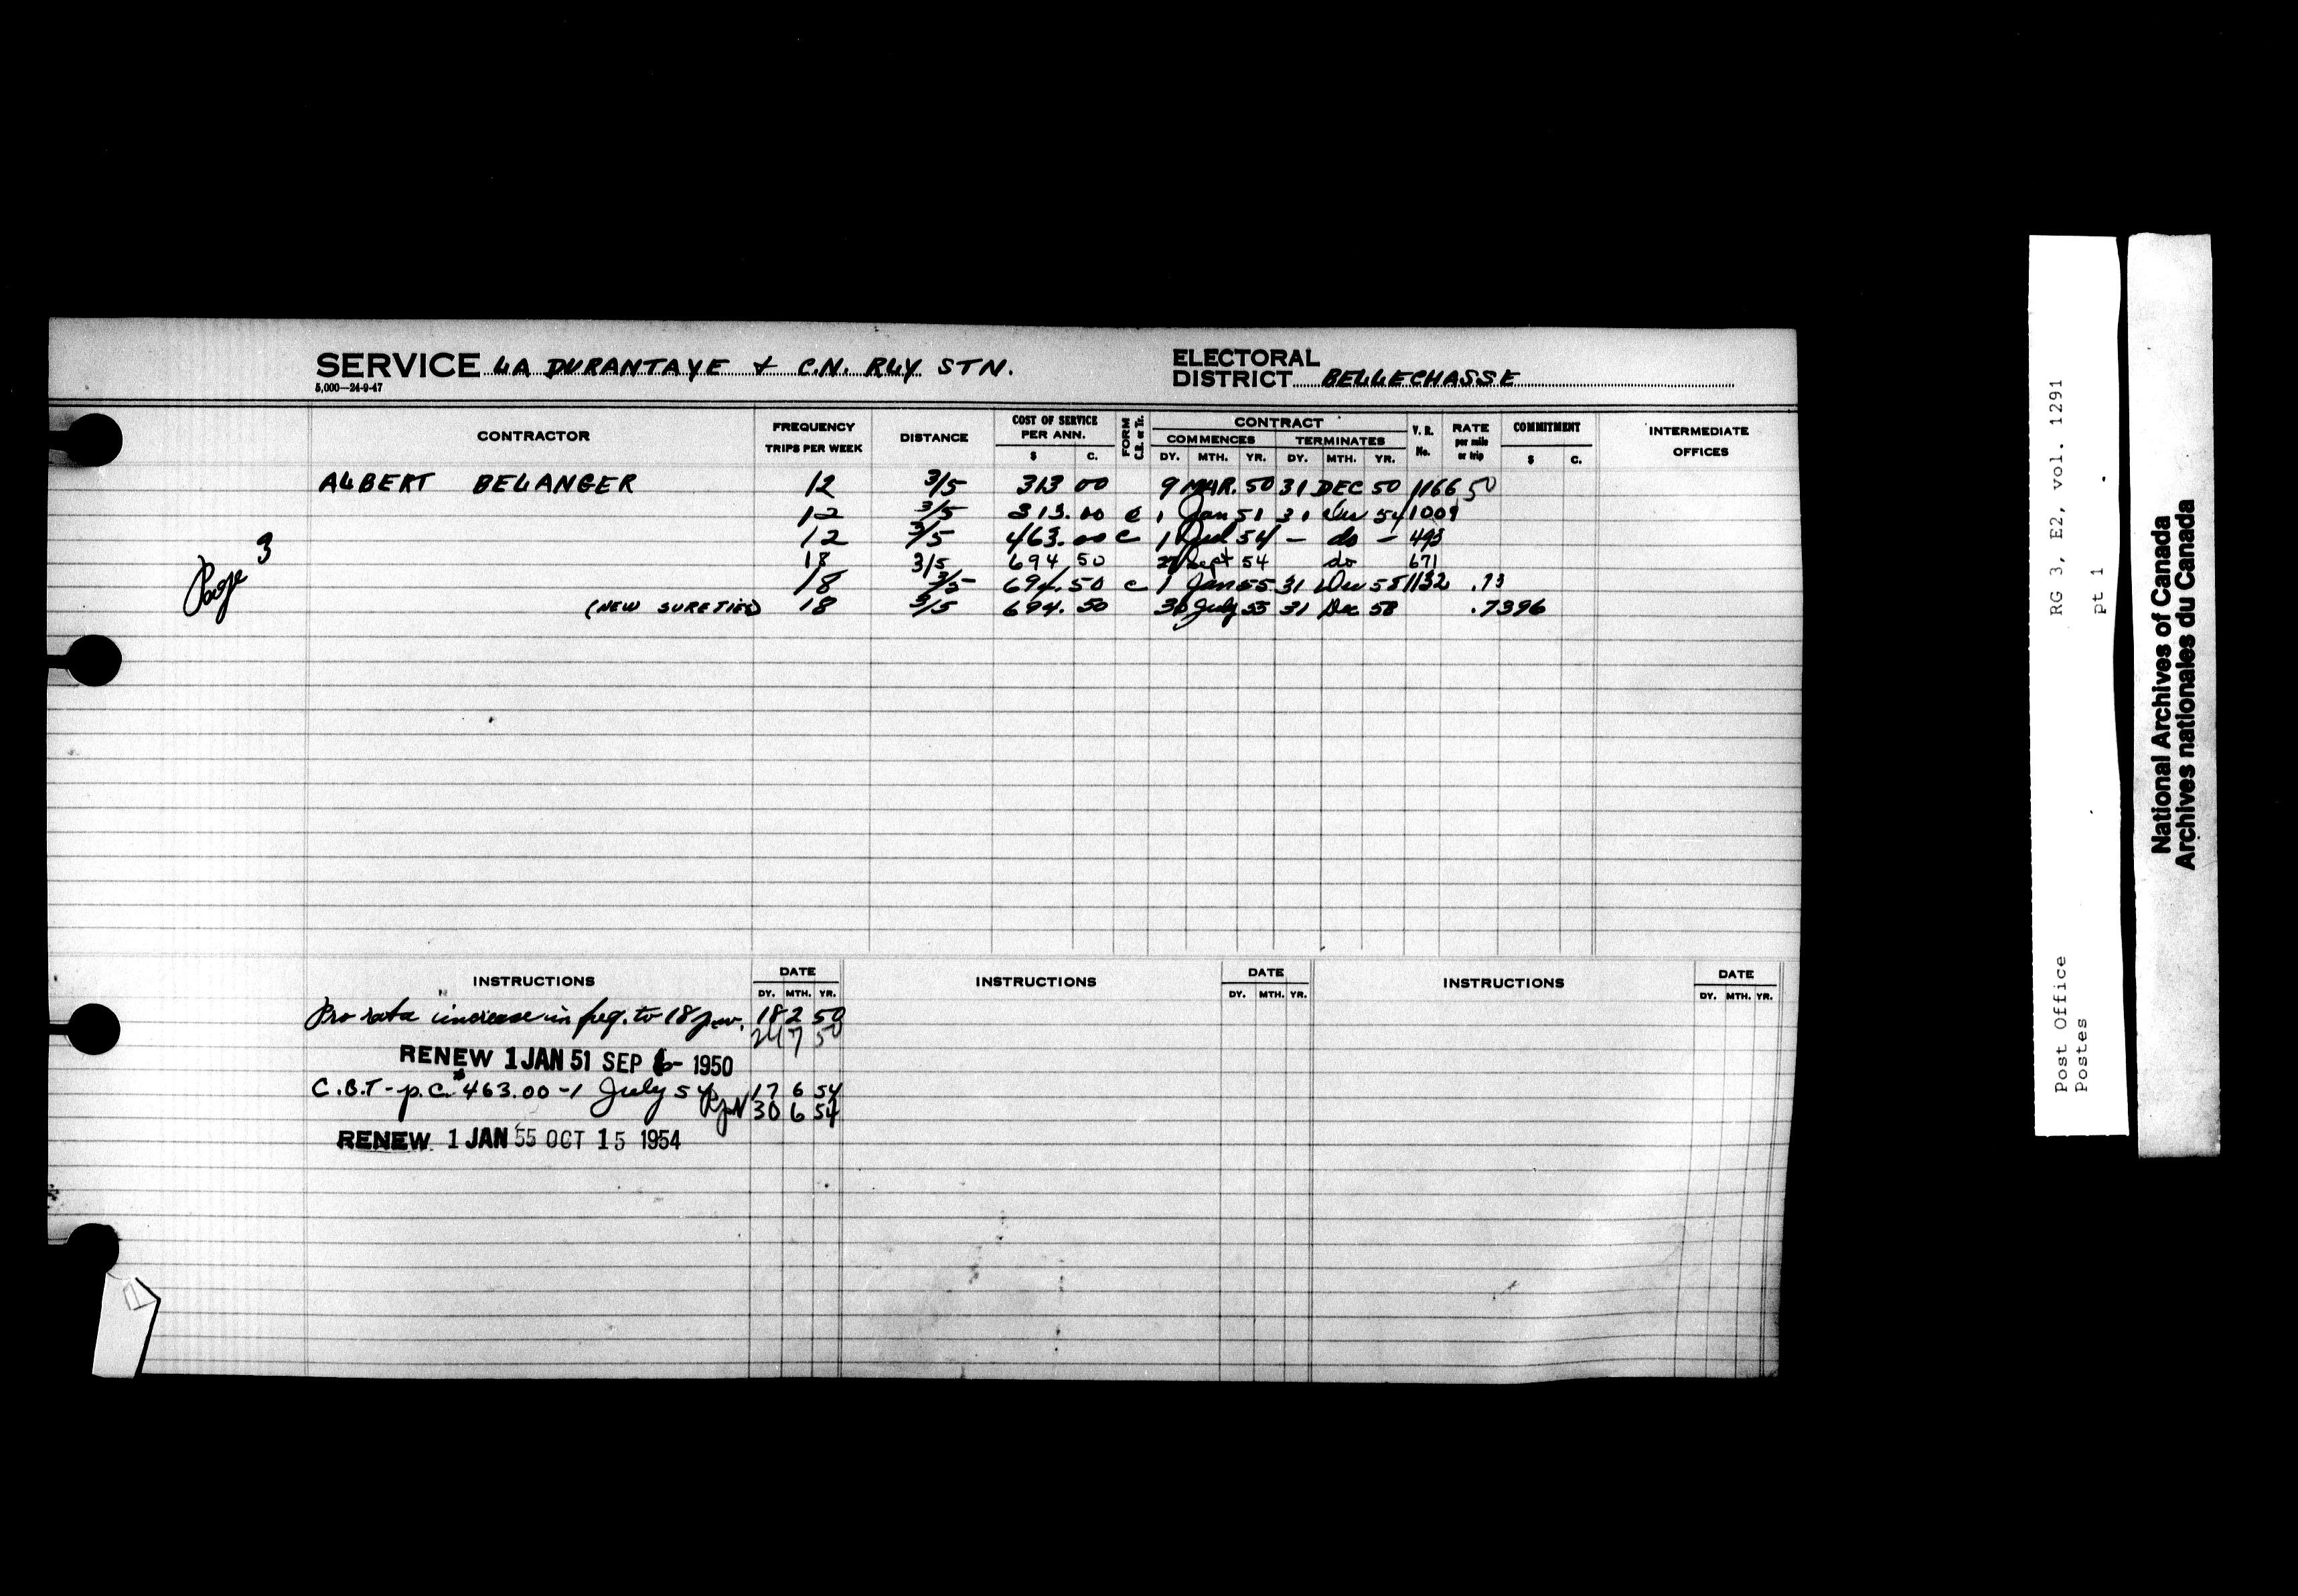 SERVICE LA DURANTAYE & C.N. RLY STN. ELECTORAL DISTRICT BELLECHASSE
5,000—24-9-47
CONTRACTOR FREQUENCY TRIPS PER WEEK DISTANCE COST OF SERVICE PER ANN. $ C. FORM C.B. or Tr. CONTRACT COMMENCES DY. MTH. YR. TERMINATES DY. MTH. YR. V.R. No. RATE per mile or trip COMMITMENT $ C. INTERMEDIATE OFFICES
ALBERT BELANGER 12 3/5 313 00 9 MAR. 50 31 DEC 50 1166 50
12 3/5 313.00 c 1 Jan 51 31 Dec 54 1009
12 3/5 463.00 c 1 Jul 54 — do — 493
18 3/5 694 50 27 Sept 54 do 671
18 3/5 694.50 c 1 Jan 55 31 Dec 58 1132 .73
(NEW SURETIES) 18 3/5 694.50 30 July 55 31 Dec 58 .7396
Page 3
INSTRUCTIONS DATE DY. MTH. YR. INSTRUCTIONS DATE DY. MTH. YR. INSTRUCTIONS DATE DY. MTH. YR.
Pro rata increase in freq. to 18 p.w. 18 2 50
24 7 50
RENEW 1 JAN 51 SEP 6- 1950
C.B.T - p.c. $463.00 - 1 July 54 17 6 54
30 6 54
RENEW 1 JAN 55 OCT 15 1954
Post Office RG 3, E2, vol. 1291
Postes pt 1
National Archives of Canada
Archives nationales du Canada